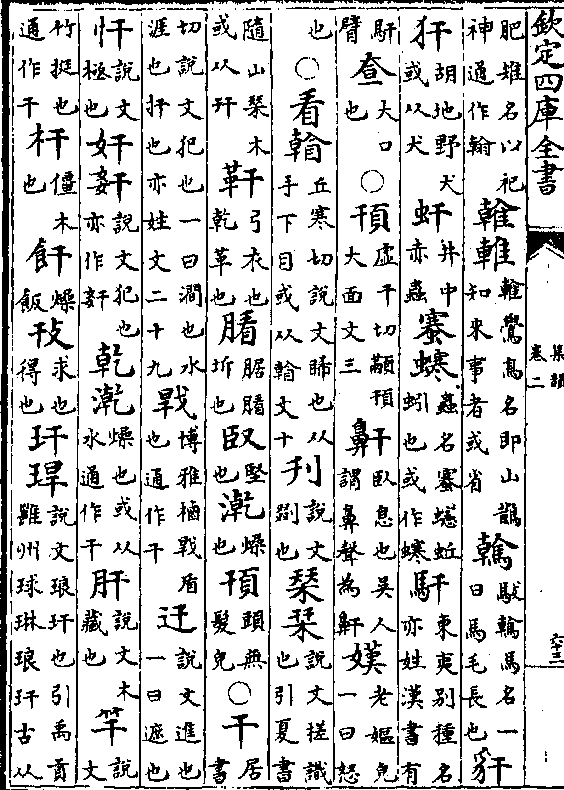 欽定四庫全書
集韻
卷二
六十三
肥雉名以祀神通作翰雗雗鷽鳥名即山鵲知來事者或省䮧馬名一曰馬毛長也豻
犴胡地野犬或从犬虷井中赤蟲蟲名蚯蚓也或作馯東夷別種名亦姓漢書有
馯臂大口也○頇虛干切顢頇大面文三鼾臥息也吳人謂鼻聲為鼾嫨老嫗皃一曰怒
也○看翰丘寒切說文睎也从手下目或从翰文十刊說文剟也栞説文槎識也引夏書
隨山栞木或从幵靬弓衣也乾革也臤堅也漧燥也頇頭無髮皃○干居書
切説文犯也一曰澗也水涯也扞也亦姓文二十九博雅楯戰盾也通作干迀說文進也一曰遮也
忓說文極也奸姦說文犯也亦作奸乾漧燥也或从水通作干肝說文木藏也竿說文
竹挺也通作干杆僵木也飦燥飯求得也玕說文琅玕也引禹貢雝州球琳琅玕古从